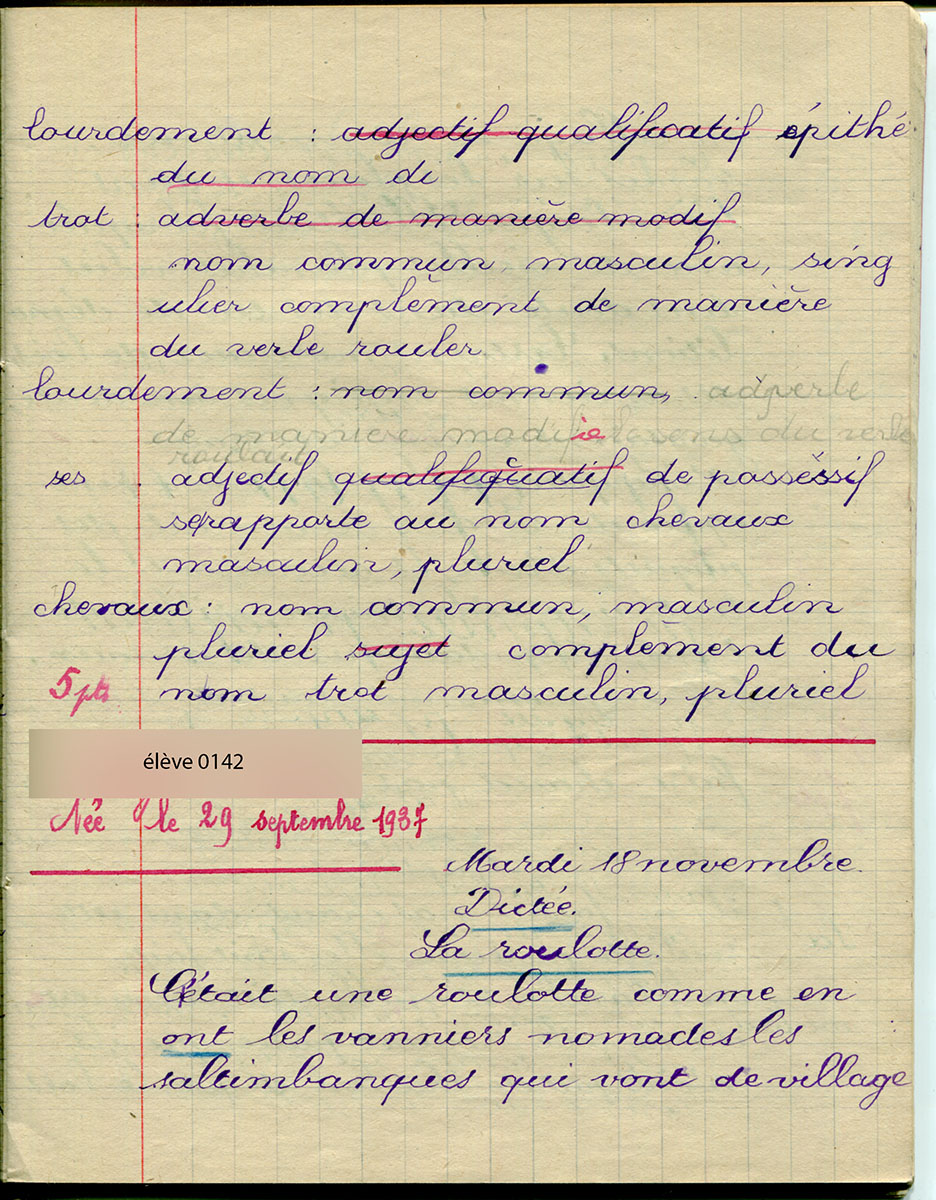 lourdement : adjectif qualificatif épithè
du nom di
trot : adverbe de manière modif
nom commun, masculin, sing
ulier complèment de manière
du verle rouler
lourdement : nom commun, adverbe
de manière modifie du verbe
roulait
ses : adjectif qualifiquatif de possèssif
se rapporte au nom chevaux
masculin, pluriel
chevaux : nom commun, masculin
pluriel sujet complèment du
5 pts nom trot masculin, pluriel
élève 0142
Née le 29 septembre 1937
Mardi 18 novembre.
Dictée.
La roulotte.
C'était une roulotte comme en
ont les vanniers nomades les
saltimbanques qui vont de village